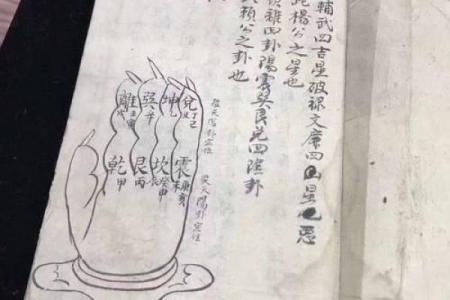 輔武四吉星破祿文廉四凶星也惡
此楊公之星也
離四卦陽震巽艮兌四陰卦
賴公之卦也
兌丁巳
坤乙
巽辛
離壬寅戌
震庚亥未
坎癸申辰
艮丙
乾甲
天陽卦定位
天陽卦定位